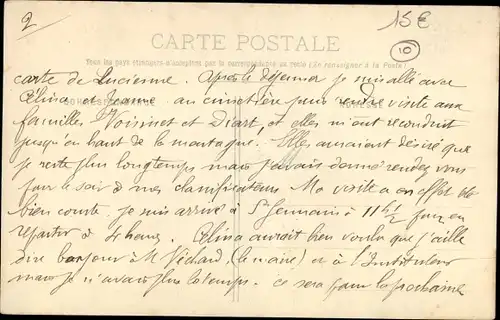 2
15€
10
CARTE POSTALE
Tous les pays étrangers n'acceptent pas la correspondance au recto (Se renseigner à la Poste)
carte de Lucienne. Après le déjeuner je suis allé avec
Célina et Jeanne au cimetière puis rendre visite aux
familles Voisinet et Diart, et elles m'ont reconduit
jusqu'au haut de la montagne. Elles auraient désiré que
je reste plus longtemps mais j'avais donné rendez vous
pour le soir à mes classificateurs. Ma visite a en effet été
bien courte. je suis arrivé à St Germain à 11h 1/2 pour en
repartir à 4 heures. Célina aurait bien voulu que j'aille
dire bonjour à M. (le maire) et à l'Instituteur
mais je n'avais plus le temps. ce sera pour la prochaine